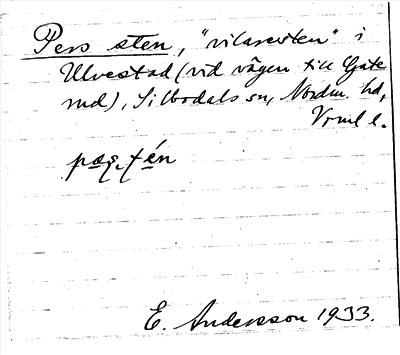 Pers sten, "vilaresten" i
Ulvestad (vid vägen till Gate
rud), Silbodals sn, Nordm. hd,
Vrml l.
E. Andersson 1933.